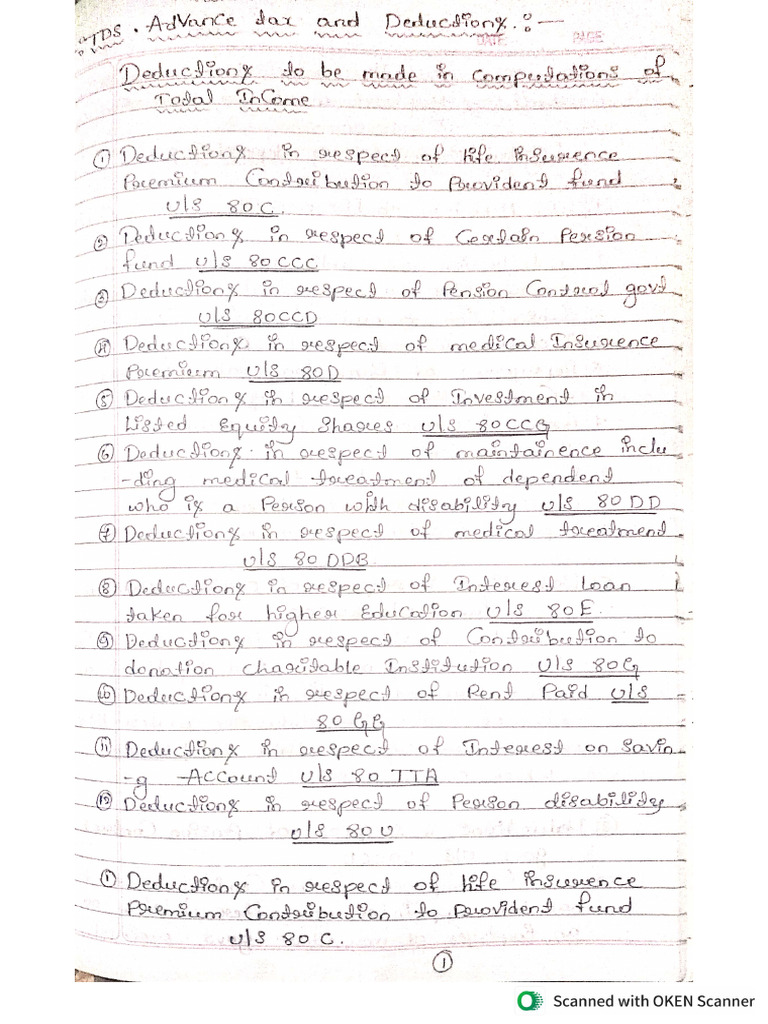 TDS. Advance tax and Deductions :-
DATE PAGE
Deductions to be made in Computations of
Total Income
① Deductions in respect of life insurence
Premium Contribution to Provident fund
U/S 80C.
② Deductions in respect of Certain Pension
fund U/S 80CCC
③ Deductions in respect of Pension Contral govt
U/S 80CCD
④ Deductions in respect of medical Insurence
Premium U/S 80D
⑤ Deductions in respect of Investment in
Listed Equity Shares U/S 80CCG
⑥ Deductions in respect of maintainence inclu
-ding medical treatment of dependent
who is a Person with disability U/S 80DD
⑦ Deductions in respect of medical treatment
U/S 80DDB
⑧ Deductions in respect of Interest Loan
taken for higher Education U/S 80E.
⑨ Deductions in respect of Contribution to
donation charitable Institution U/S 80G
⑩ Deductions in respect of Rent Paid U/S
80GG
⑪ Deductions in respect of Interest on Savin
-g Account U/S 80TTA
⑫ Deductions in respect of Person disability
U/S 80U
① Deductions in respect of life insurence
Premium Contribution to provident fund
U/S 80C.
①
Scanned with OKEN Scanner